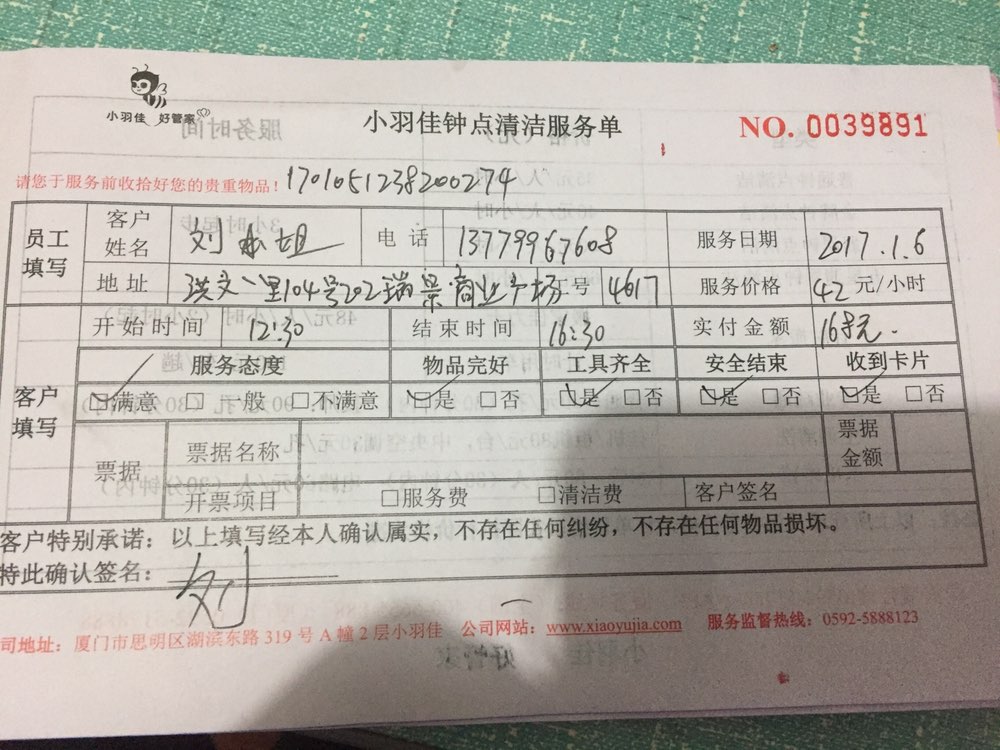 小羽佳 好管家
小羽佳钟点清洁服务单 NO. 0039891
请您于服务前收拾好您的贵重物品! 1701051238200274
员工填写 客户姓名 刘小姐 电话 13779967608 服务日期 2017.1.6
地址 洪文八里104号202瑞景商业广场 工号 4617 服务价格 42 元/小时
开始时间 12:30 结束时间 16:30 实付金额 168元.
客户填写 服务态度 物品完好 工具齐全 安全结束 收到卡片
☑满意 □一般 □不满意 ☑是 □否 ☑是 □否 ☑是 □否 ☑是 □否
票据 票据名称 票据金额
开票项目 □服务费 □清洁费 客户签名
客户特别承诺：以上填写经本人确认属实，不存在任何纠纷，不存在任何物品损坏。
特此确认签名： 刘
司地址：厦门市思明区湖滨东路 319 号 A 幢 2 层小羽佳 公司网站：www.xiaoyujia.com 服务监督热线：0592-5888123